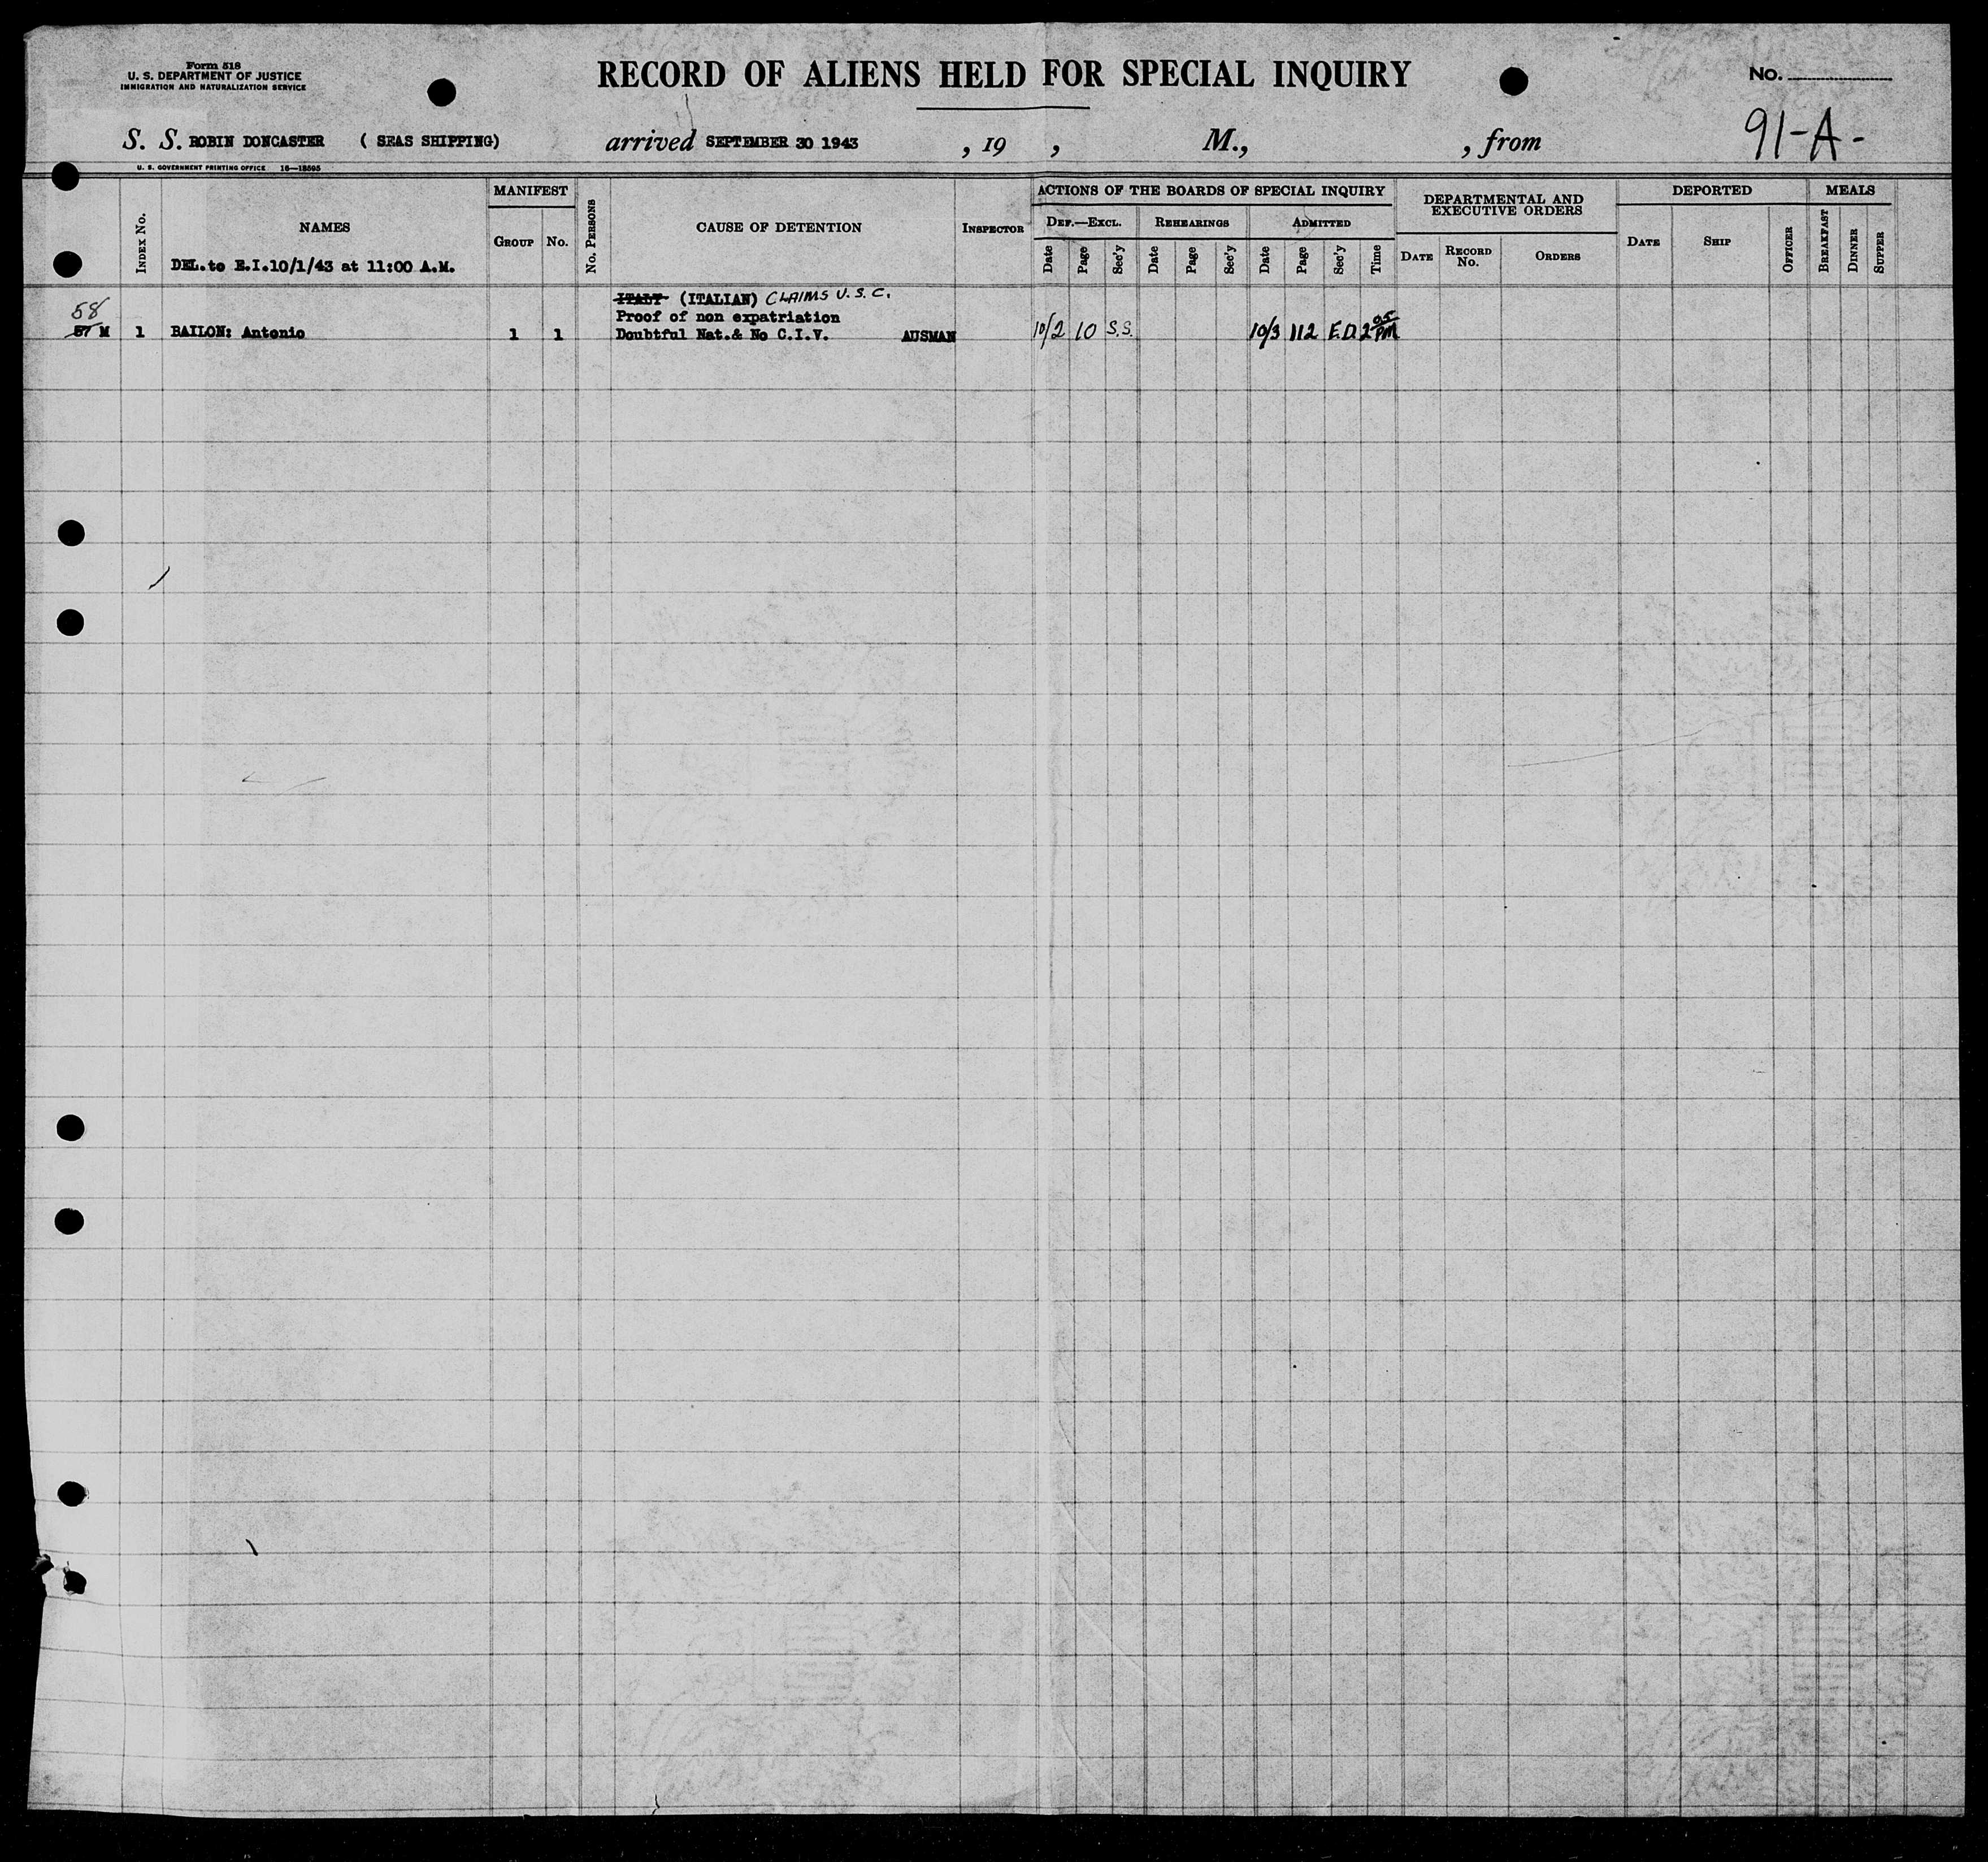 Form 518
U. S. DEPARTMENT OF JUSTICE
IMMIGRATION AND NATURALIZATION SERVICE
RECORD OF ALIENS HELD FOR SPECIAL INQUIRY
No.
91-A-
S. S. ROBIN DONCASTER ( SEAS SHIPPING) arrived SEPTEMBER 30 1943 , 19 , M., , from
U. S. GOVERNMENT PRINTING OFFICE 16—18595
INDEX No.
NAMES
DEL. to E.I. 10/1/43 at 11:00 A.M.
MANIFEST
GROUP No.
No. PERSONS
CAUSE OF DETENTION
INSPECTOR
ACTIONS OF THE BOARDS OF SPECIAL INQUIRY
DEF.—EXCL. REHEARINGS ADMITTED
Date Page Sec'y Date Page Sec'y Date Page Sec'y Time
DEPARTMENTAL AND
EXECUTIVE ORDERS
DATE RECORD No. ORDERS
DEPORTED
DATE SHIP OFFICER
MEALS
BREAKFAST DINNER SUPPER
58
ITALY (ITALIAN) CLAIMS U.S.C.
Proof of non expatriation
57 M 1 BAILON: Antonio 1 1 Doubtful Nat.& No C.I.V. AUSMAN 10/2 10 S.S. 10/3 112 E.D. 2 05 PM